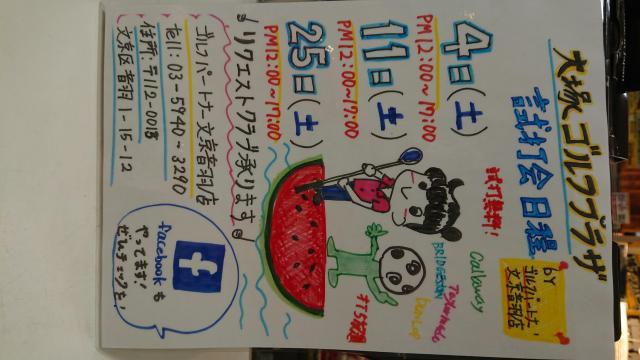 大塚ゴルフプラザ
試打会 日程
by
ゴルフパートナー
文京音羽店
4日(土)
PM12:00~17:00
11日(土)
PM12:00~17:00
25日(土)
PM12:00~17:00
試打無料!
Callaway
TaylorMade
BRIDGESTONE
DUNLOP
リクエストクラブ承ります♪
ゴルフパートナー文京音羽店
tell:03-5940-3290
住所:〒112-0013
文京区音羽1-15-12
f
facebookも
やってます!
ぜひチェックを!